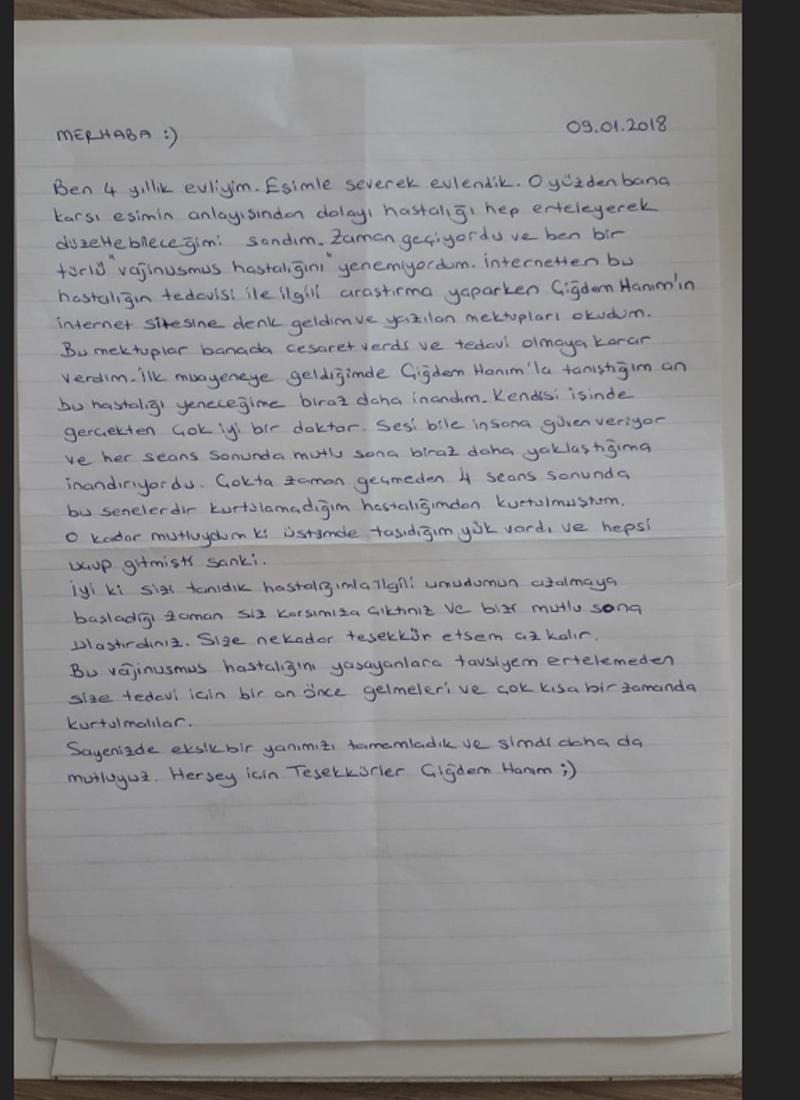 MERHABA :)
09.01.2018
Ben 4 yıllık evliyim. Eşimle severek evlendik. O yüzden bana
karşı eşimin anlayışından dolayı hastalığı hep erteleyerek
düzeltebileceğimi sandım. Zaman geçiyordu ve ben bir
türlü "vajinusmus hastalığını" yenemiyordum. internetten bu
hastalığın tedavisi ile ilgili araştırma yaparken Çiğdem Hanım'ın
internet sitesine denk geldim ve yazılan mektupları okudum.
Bu mektuplar banada cesaret verdi ve tedavi olmaya karar
verdim. İlk muayeneye geldiğimde Çiğdem Hanım'la tanıştığım an
bu hastalığı yeneceğime biraz daha inandım. Kendisi işinde
gerçekten çok iyi bir doktor. Sesi bile insana güven veriyor
ve her seans sonunda mutlu sona biraz daha yaklaştığıma
inandırıyordu. Çokta zaman geçmeden 4 seans sonunda
bu senelerdir kurtulamadığım hastalığımdan kurtulmuştum.
O kadar mutluydum ki üstümde taşıdığım yük vardı ve hepsi
uçup gitmişti sanki.
İyi ki sizi tanıdık hastalığımla ilgili umudumun azalmaya
başladığı zaman siz karşımıza çıktınız ve bizi mutlu sona
ulaştırdınız. Size nekadar teşekkür etsem az kalır.
Bu vajinusmus hastalığını yaşayanlara tavsiyem ertelemeden
size tedavi için bir an önce gelmeleri ve çok kısa bir zamanda
kurtulmalılar.
Sayenizde eksik bir yanımızı tamamladık ve şimdi daha da
mutluyuz. Herşey için Teşekkürler Çiğdem Hanım ;)